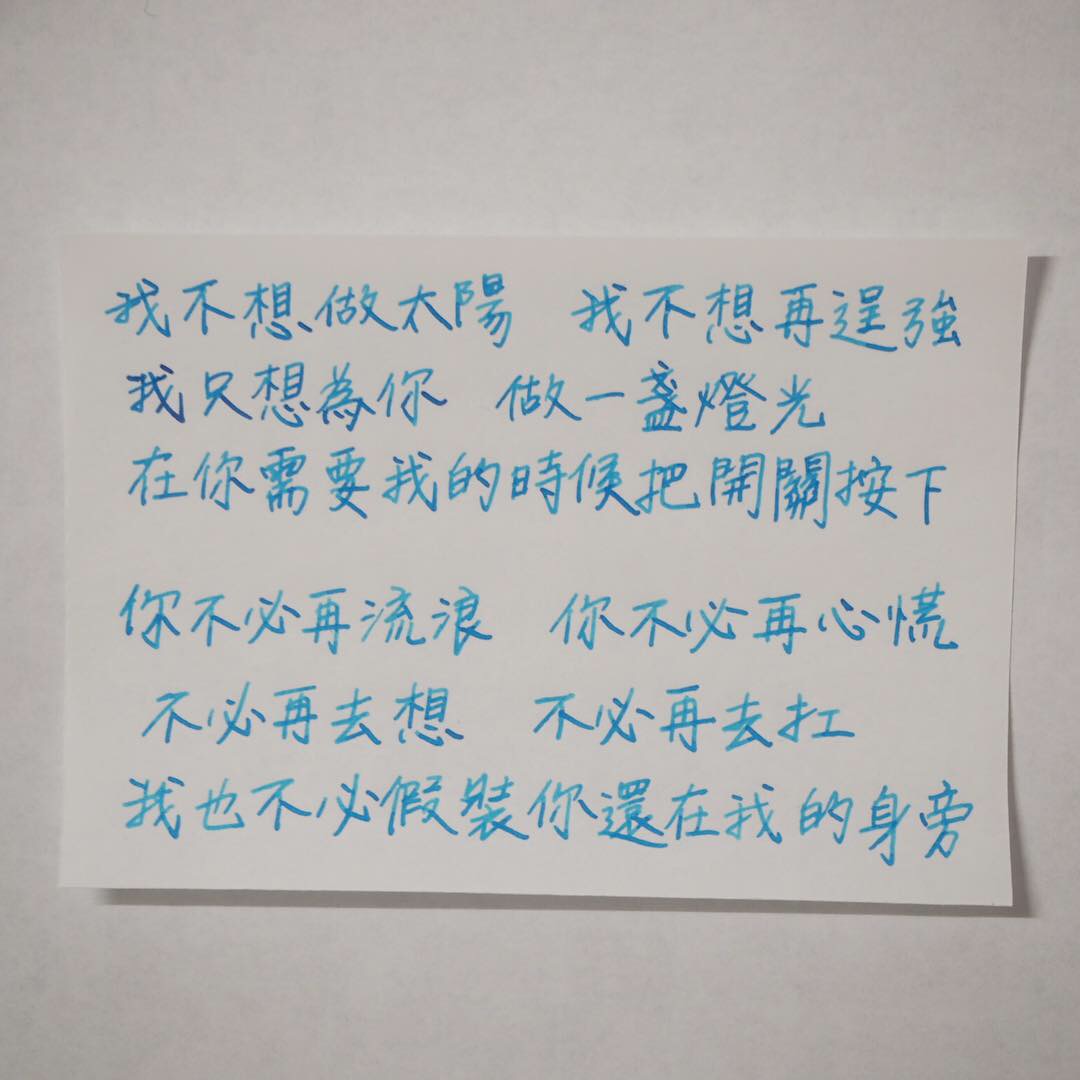 我不想做太陽　我不想再逞強
我只想為你　做一盞燈光
在你需要我的時候把開關按下
你不必再流浪　你不必再心慌
不必再去想　不必再去扛
我也不必假裝你還在我的身旁